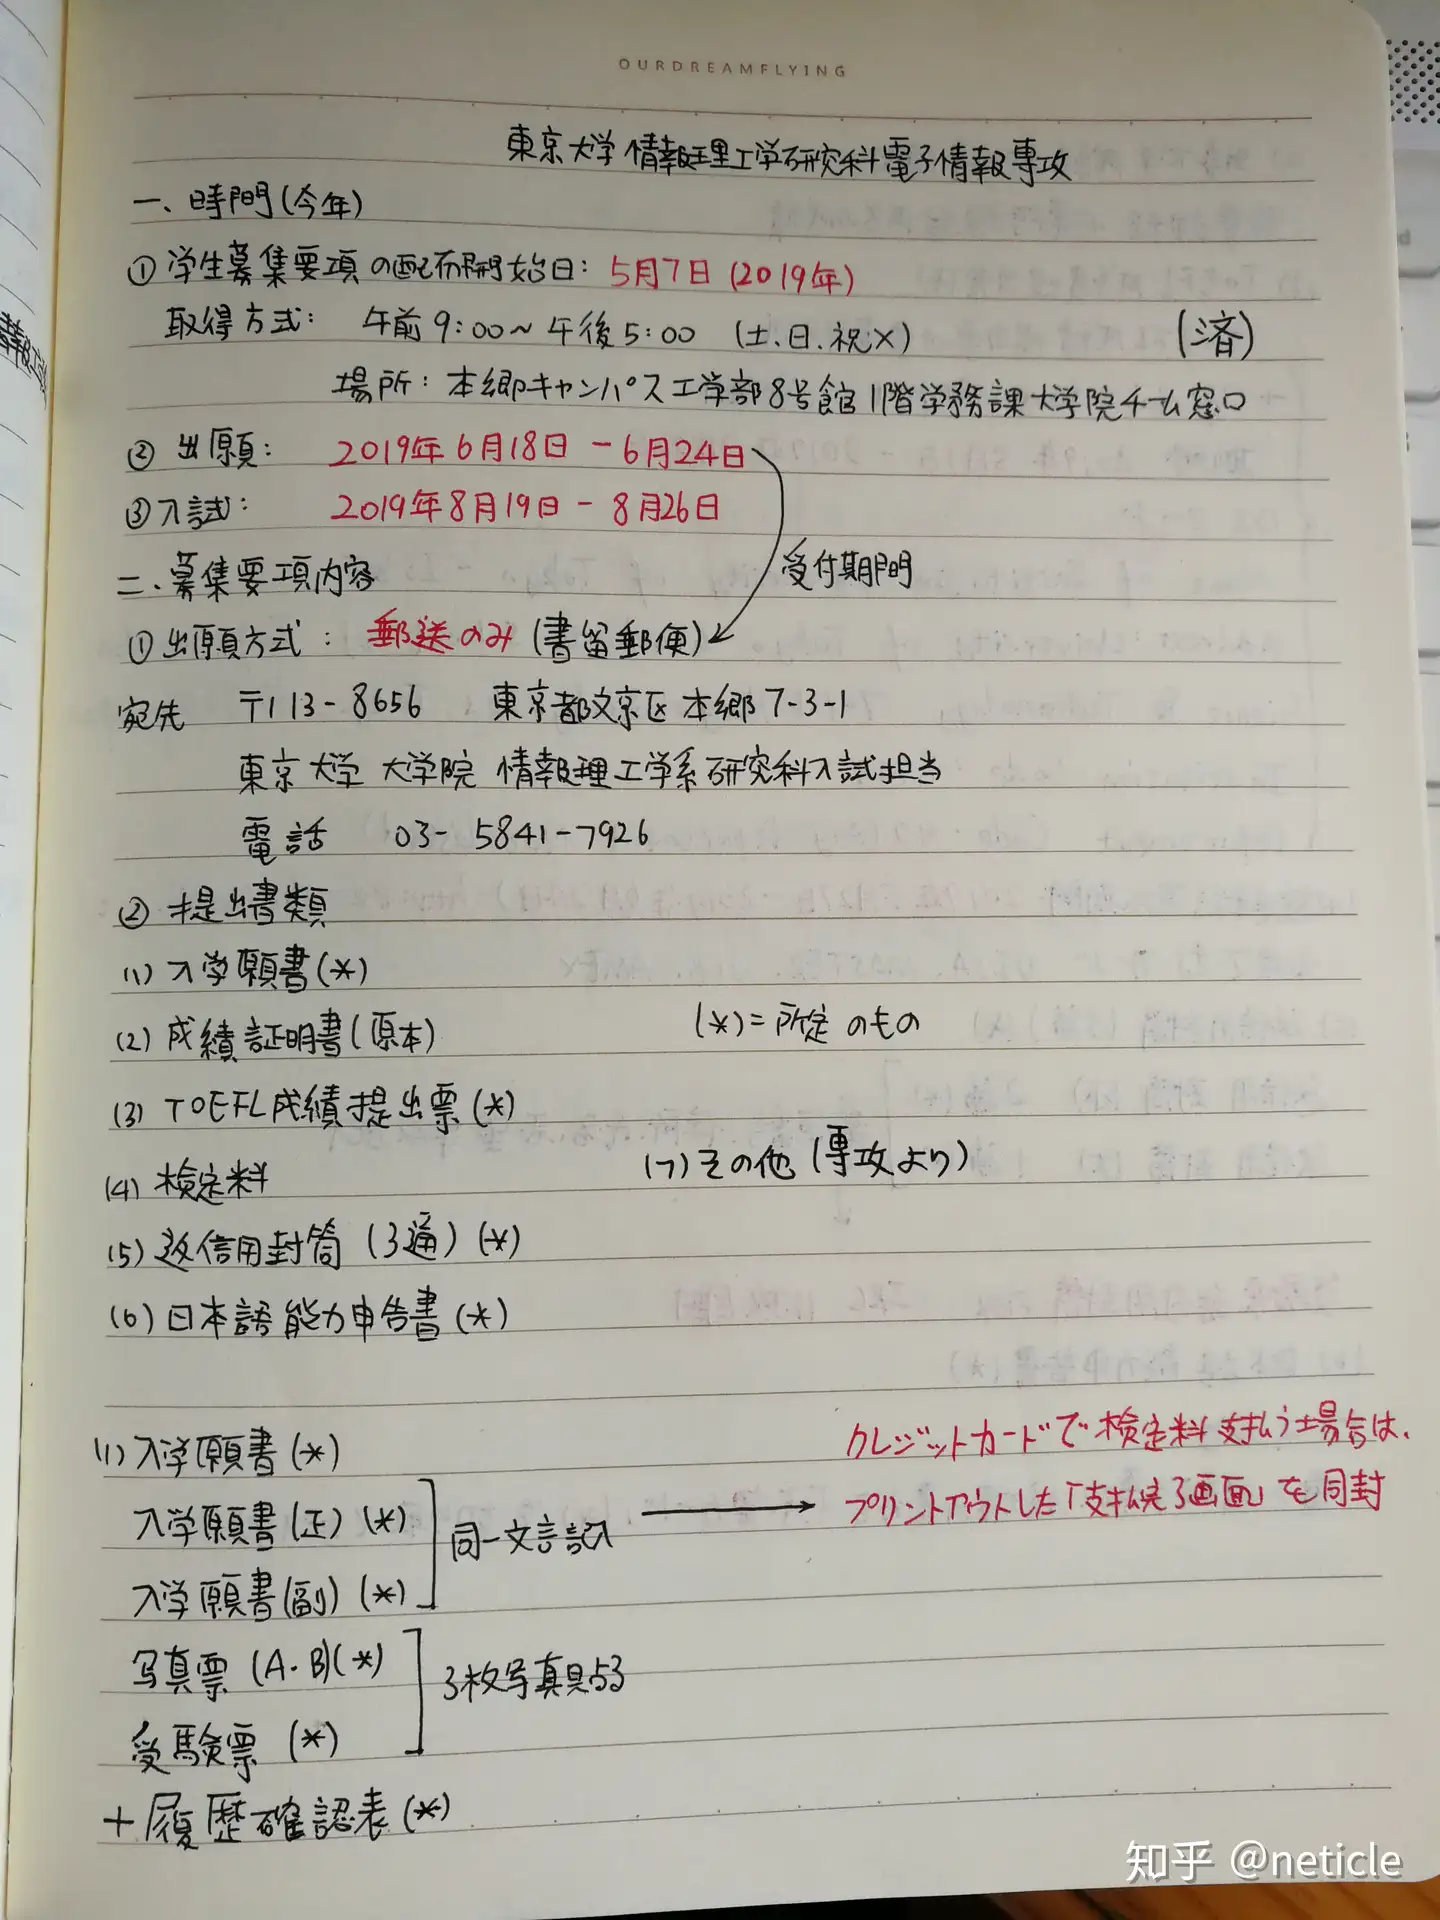 OURDREAMFLYING
東京大学 情報理工学研究科電子情報専攻
一、時間(今年)
① 学生募集要項の配布開始日: 5月7日(2019年)
取得方式: 午前9:00~午後5:00 (土.日.祝×) (済)
場所: 本郷キャンパス工学部8号館1階学務課大学院チーム窓口
② 出願: 2019年6月18日 - 6月24日
③ 入試: 2019年8月19日 - 8月26日
受付期間
二、募集要項内容
① 出願方式: 郵送のみ(書留郵便)
宛先 〒113-8656 東京都文京区本郷7-3-1
東京大学 大学院 情報理工学系研究科入試担当
電話 03-5841-7926
② 提出書類
(1) 入学願書(*)
(2) 成績証明書(原本) (*)=所定のもの
(3) TOEFL成績提出票(*)
(4) 検定料 (7) その他(専攻より)
(5) 返信用封筒(3通)(*)
(6) 日本語能力申告書(*)
(1) 入学願書(*)
クレジットカードで検定料支払う場合は、
入学願書(正)(*)
同一文言記入
プリントアウトした「支払完了画面」を同封
入学願書(副)(*)
写真票(A・B)(*)
3枚写真貼る
受験票(*)
+履歴確認表(*)
知乎 @neticle